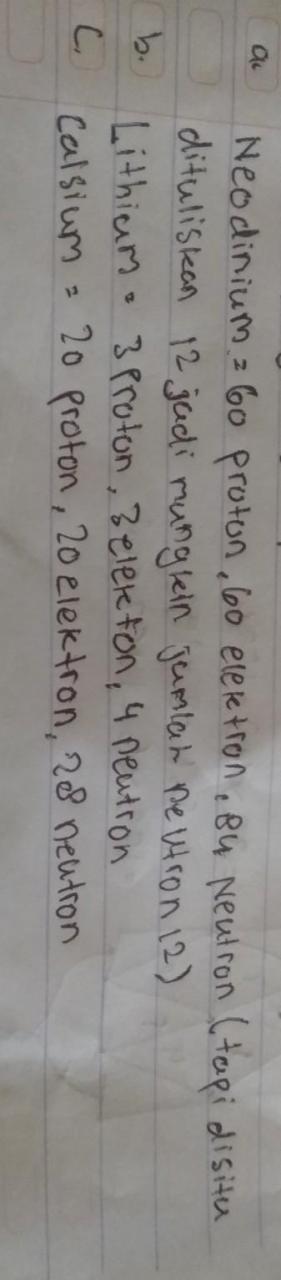 a. Neodinium = 60 proton, 60 elektron, 84 Neutron (tapi disitu
dituliskan 12 jadi mungkin jumlah neutron 12)
b. Lithium = 3 Proton, 3 elekton, 4 neutron
C. Calsium = 20 proton, 20 elektron, 28 neutron